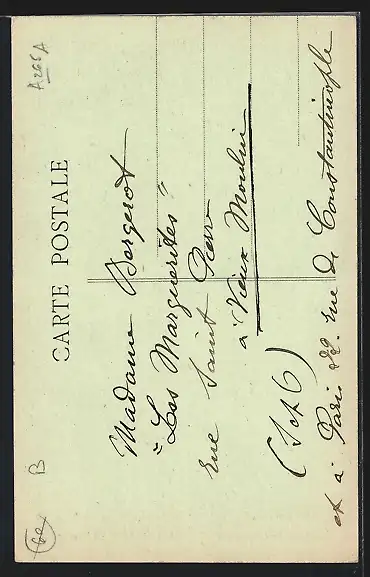 CARTE POSTALE
Madame Bergerot
"Les Marguerites"
rue Saint Pierre
à Vieux Moulin
et à Paris 22. rue de Constantinople
B